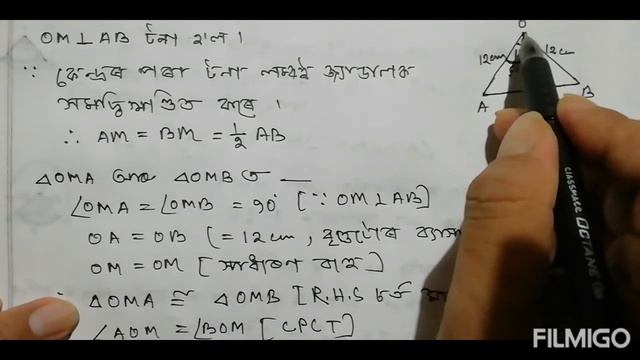 OM⊥AB টনা হ'ল।
∵ কেন্দ্ৰৰ পৰা টনা লম্বই জ্যাডালক
সমদ্বিখণ্ডিত কৰে।
∴ AM = BM = 1/2 AB
△OMA আৰু △OMB ত —
∠OMA = ∠OMB = 90° [∵ OM⊥AB]
OA = OB (= 12 cm, বৃত্তটোৰ ব্যাসা
OM = OM [সাধাৰণ বাহু]
∴ △OMA ≅ △OMB [R.H.S চৰ্ত
∠AOM = ∠BOM [CPCT]
O
12cm
12 c
A
B
CLASSMATE OCTANE
FILMIGO